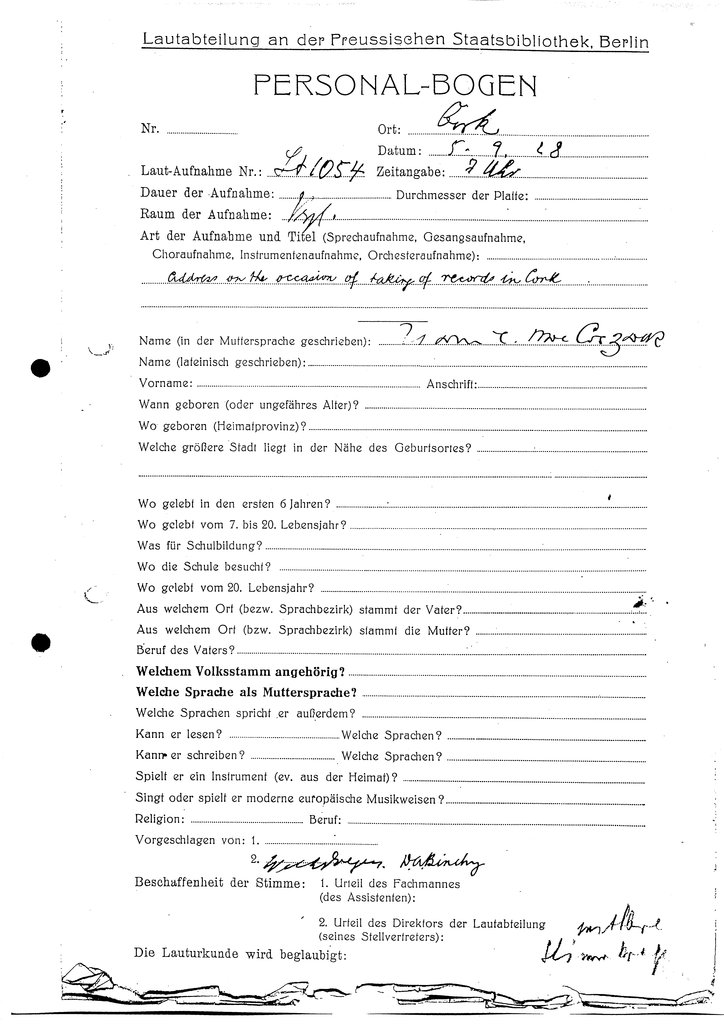 Lautabteilung an der Preussischen Staatsbibliothek, Berlin
PERSONAL-BOGEN
Nr. Ort: Cork
Datum: 5. 9. 28
Laut-Aufnahme Nr.: LA 1054 Zeitangabe: 7 Uhr
Dauer der Aufnahme: Durchmesser der Platte:
Raum der Aufnahme:
Art der Aufnahme und Titel (Sprechaufnahme, Gesangsaufnahme,
Choraufnahme, Instrumentenaufnahme, Orchesteraufnahme):
Address on the occasion of taking of records in Cork
Name (in der Muttersprache geschrieben):
Name (lateinisch geschrieben):
Vorname: Anschrift:
Wann geboren (oder ungefähres Alter)?
Wo geboren (Heimatprovinz)?
Welche größere Stadt liegt in der Nähe des Geburtsortes?
Wo gelebt in den ersten 6 Jahren?
Wo gelebt vom 7. bis 20. Lebensjahr?
Was für Schulbildung?
Wo die Schule besucht?
Wo gelebt vom 20. Lebensjahr?
Aus welchem Ort (bezw. Sprachbezirk) stammt der Vater?
Aus welchem Ort (bzw. Sprachbezirk) stammt die Mutter?
Beruf des Vaters?
Welchem Volksstamm angehörig?
Welche Sprache als Muttersprache?
Welche Sprachen spricht er außerdem?
Kann er lesen? Welche Sprachen?
Kann er schreiben? Welche Sprachen?
Spielt er ein Instrument (ev. aus der Heimat)?
Singt oder spielt er moderne europäische Musikweisen?
Religion: Beruf:
Vorgeschlagen von: 1.
2. D A Binchy
Beschaffenheit der Stimme: 1. Urteil des Fachmannes
(des Assistenten):
2. Urteil des Direktors der Lautabteilung
(seines Stellvertreters):
Die Lauturkunde wird beglaubigt: